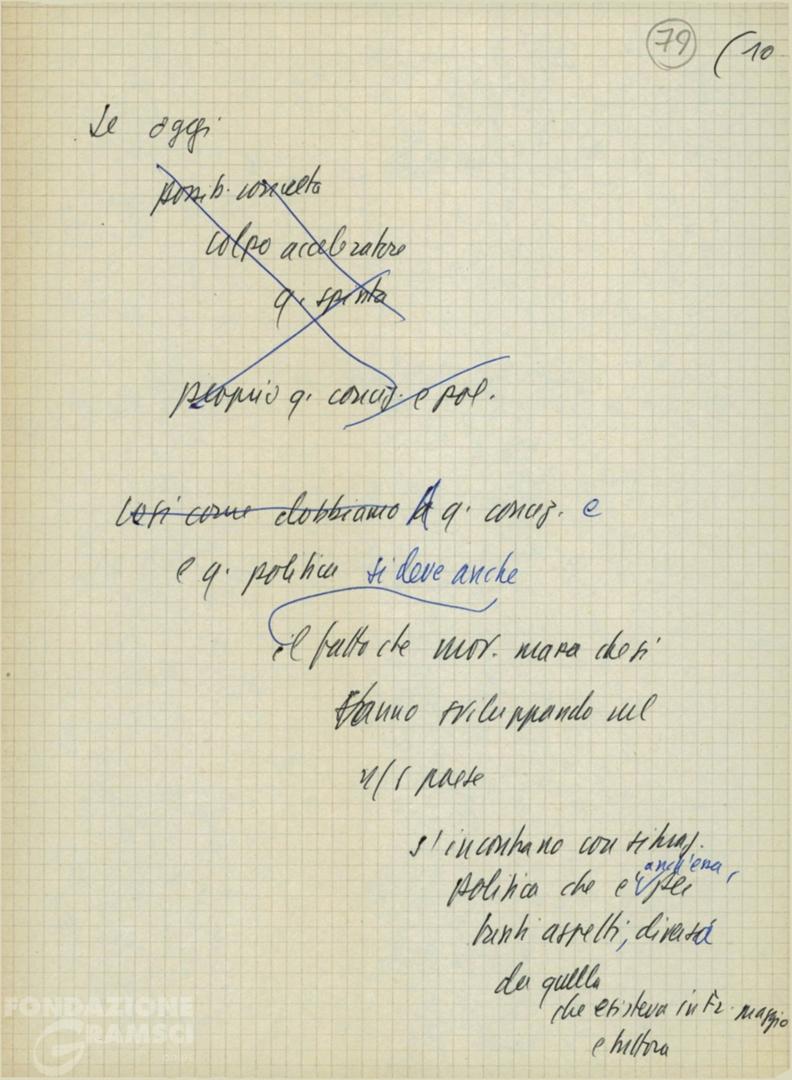 79 (10
Se oggi
possib. concreta
colpo acceleratore
q. spinta
proprio q. concez. e pol.
così come dobbiamo A q. concez. e
e q. politica si deve anche
il fatto che mov. massa che si
stanno sviluppando nel
n/s paese
s'incontrano con situaz.
politica che è anch'essa, per
tanti aspetti, diversa
da quella
che esisteva in Fr. maggio
e tuttora
FONDAZIONE
GRAMSCI